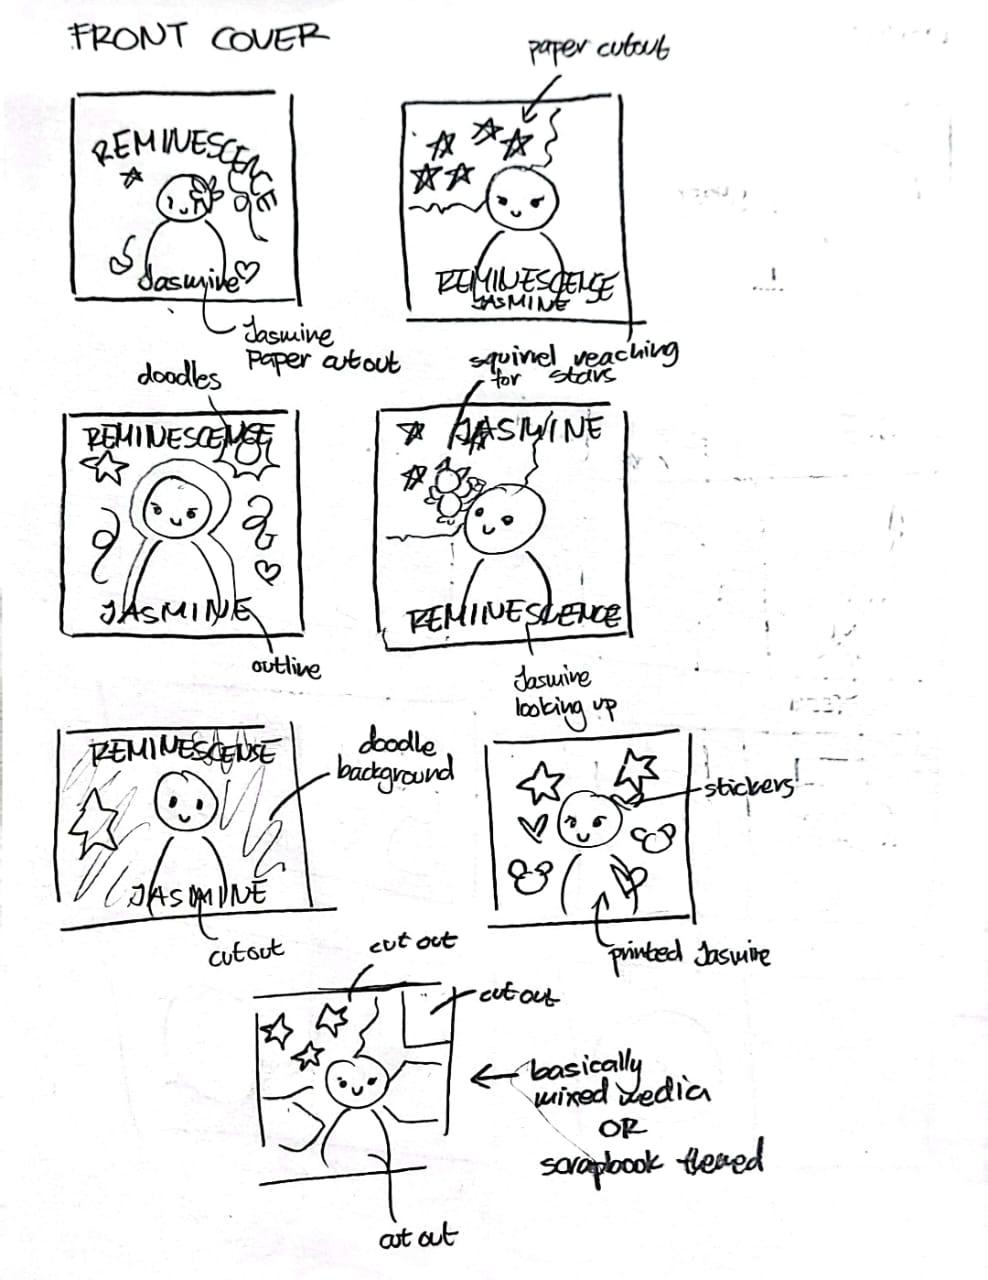 FRONT COVER
paper cutout
REMINESCENCE
Jasmine
Jasmine
paper cutout
REMINESCENSE
JASMINE
doodles
squirrel reaching
for stars
REMINESCENSE
JASMINE
outline
JASMINE
REMINESCENCE
Jasmine
looking up
REMINESCENSE
JASMINE
doodle
background
cutout
stickers
printed Jasmine
cut out
cut out
basically
mixed media
OR
scrapbook themed
cut out